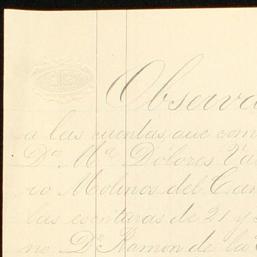 Observa
a las cuentas, que com
Dª Mª Dolores Va
io Molinos del Cam
las escrituras de 21 y
no Dn Ramon de la C